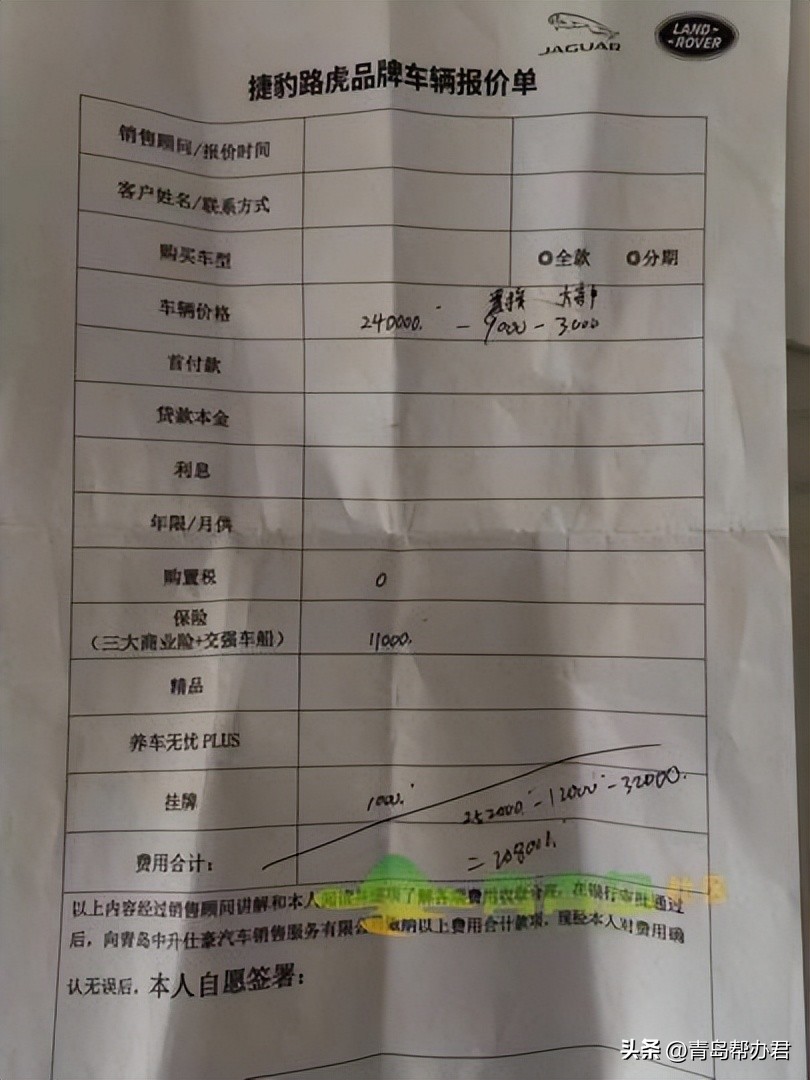 JAGUAR
LAND-
-ROVER
捷豹路虎品牌车辆报价单
销售顾问/报价时间
客户姓名/联系方式
购买车型 全款 分期
置换 大客户
车辆价格 240000. - 9000 - 3000
首付款
贷款本金
利息
年限/月供
购置税 0
保险
(三大商业险+交强车船) 11000.
精品
养车无忧 PLUS
挂牌 1000. 252000. - 12000 - 32000.
费用合计: = 208000.
以上内容经过销售顾问讲解和本人阅读 了解各 费用 在银行审批通过
后,向青岛中升仕豪汽车销售服务有限公 缴纳以上费用合计款项,现经本人对费用确
认无误后,本人自愿签署:
头条 @青岛帮办君